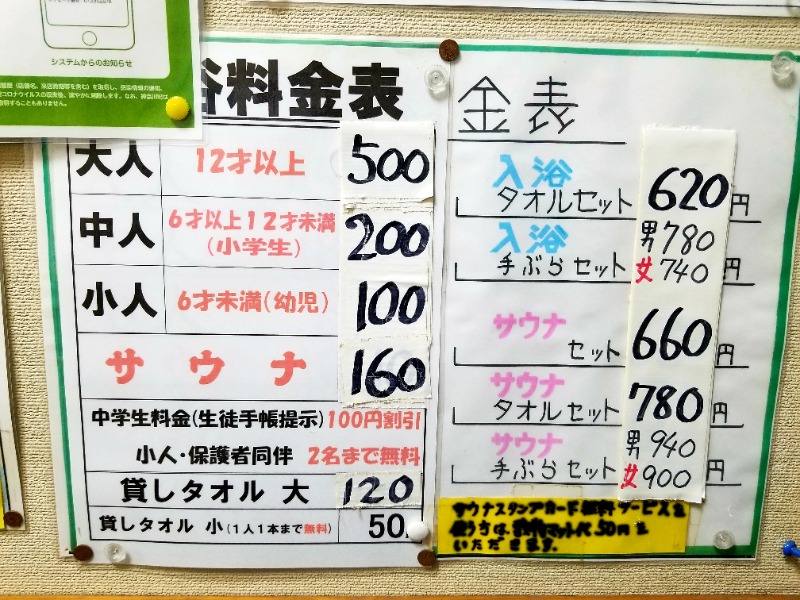 システムからのお知らせ
料金表
大人 12才以上 500
中人 6才以上12才未満
(小学生) 200
小人 6才未満(幼児) 100
サウナ 160
中学生料金(生徒手帳提示)100円割引
小人・保護者同伴 2名まで無料
貸しタオル 大 120
貸しタオル 小(1人1本まで無料) 50
金表
入浴
タオルセット 620円
入浴 男780
手ぶらセット 女740円
サウナ
セット 660円
サウナ
タオルセット 780円
サウナ 男940
手ぶらセット 女900円
サウナスタンプカード無料サービスを
使う方は 50円を
いただきます。